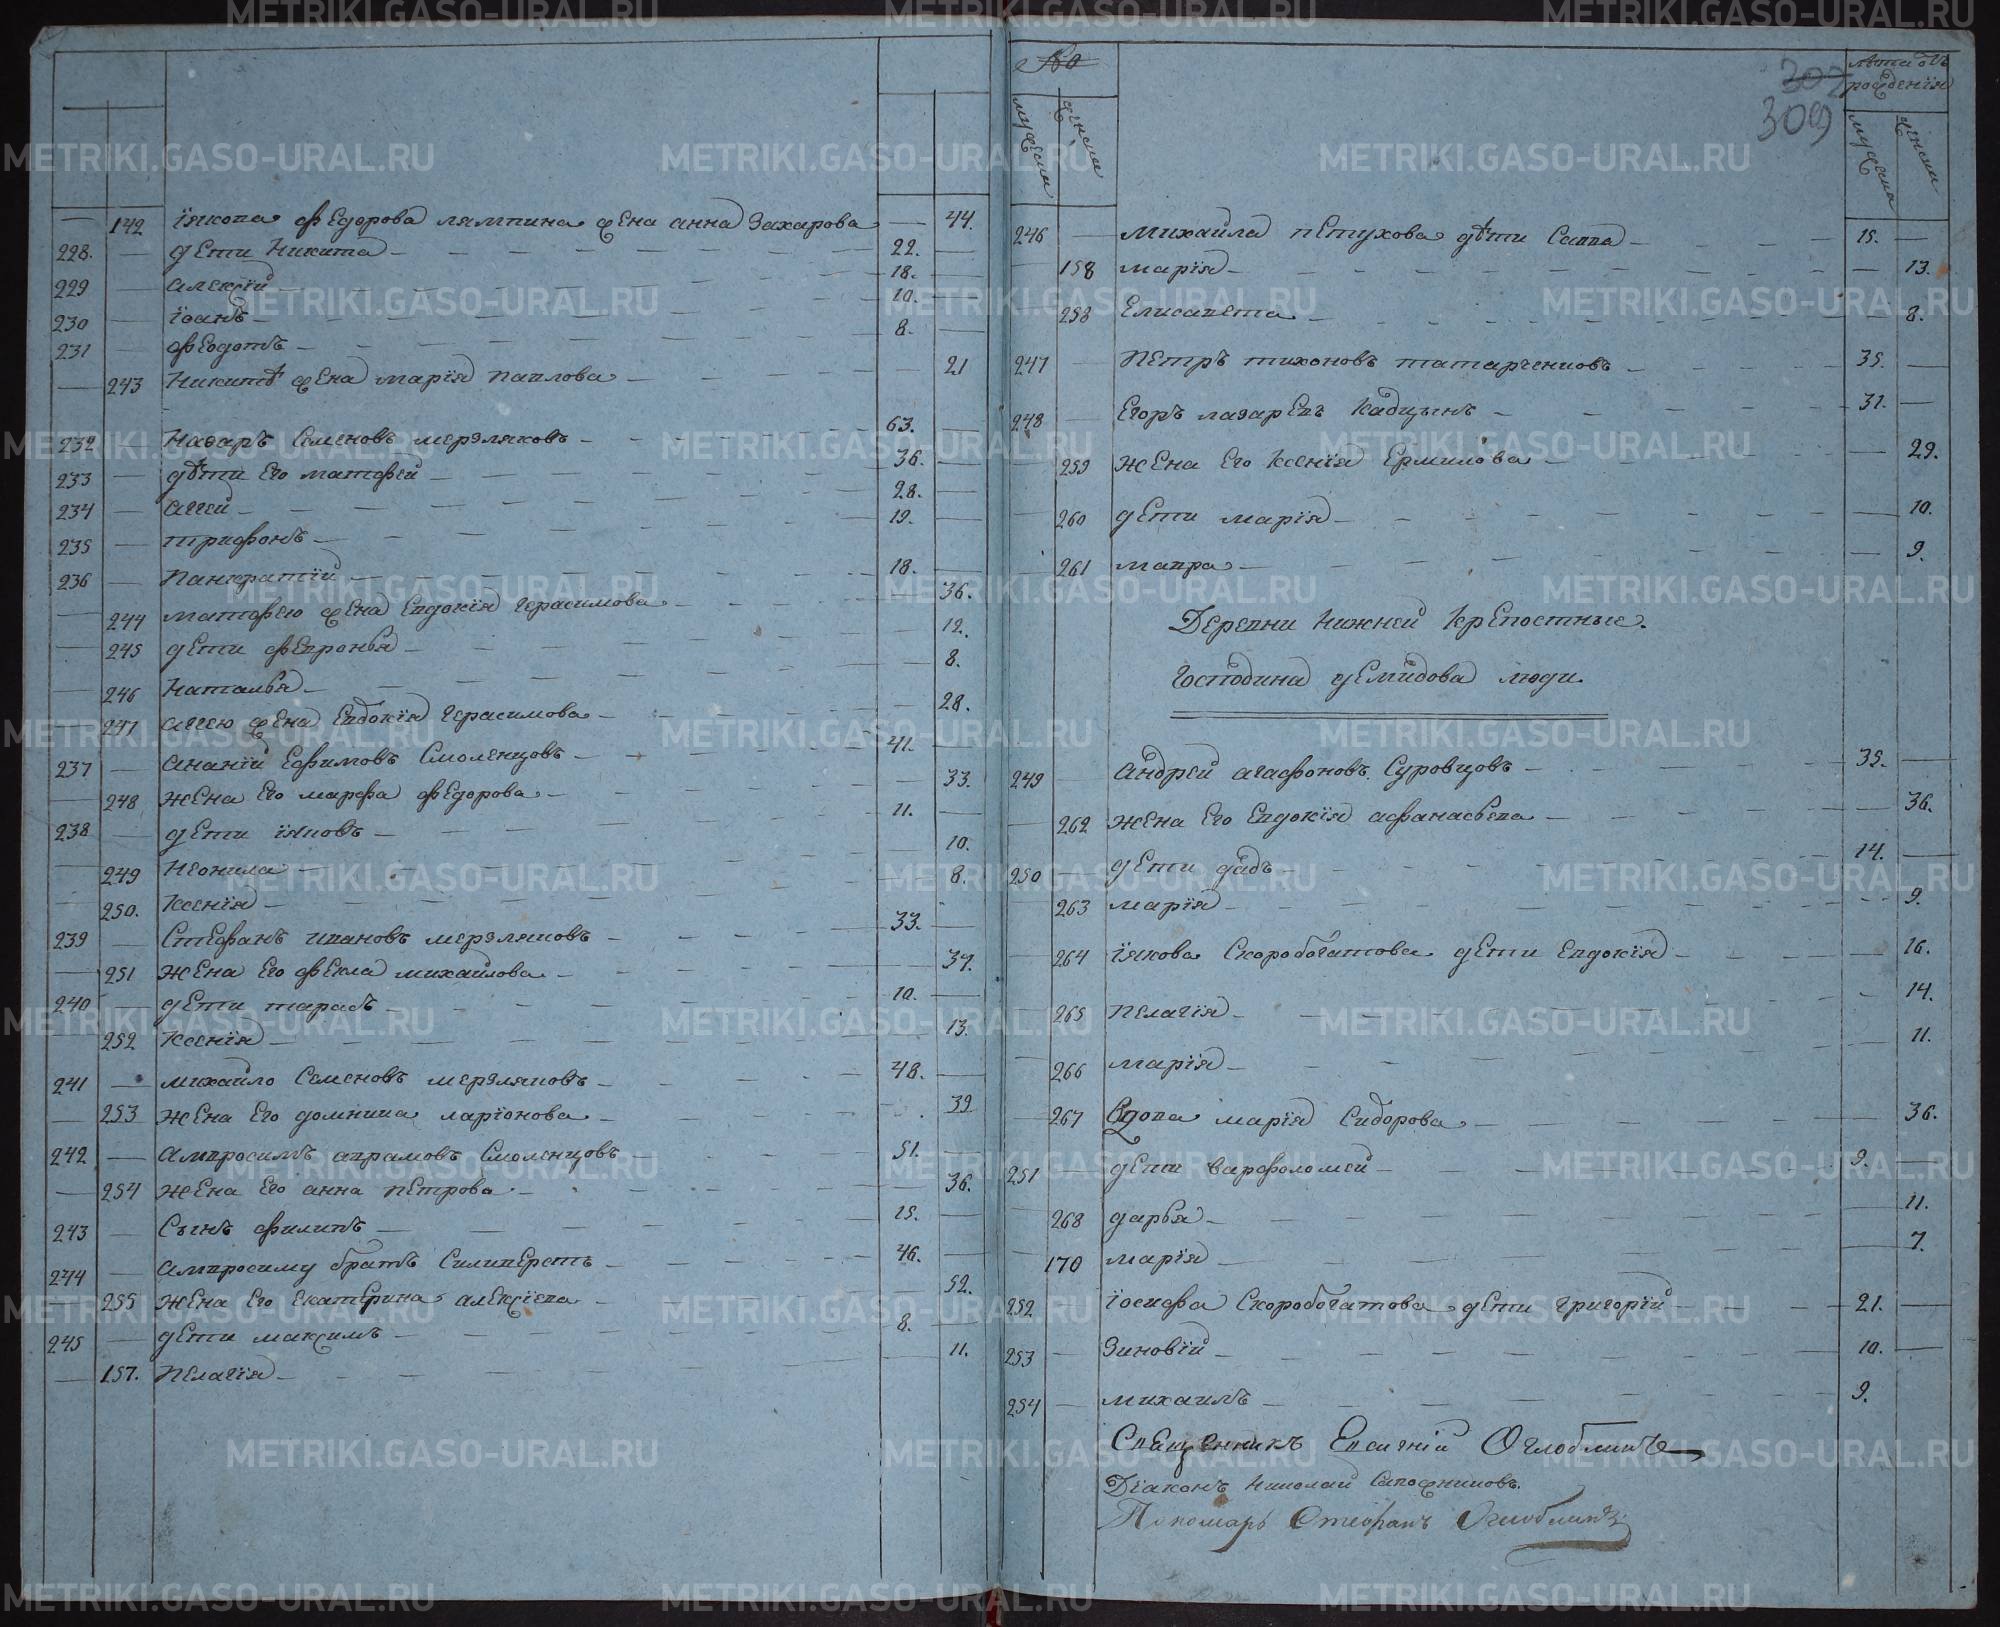 142 Іякова Федорова лямпина жена анна Захарова — 44.
228. — дети Никита — 22. —
229 — алексiй — 18. —
230 — iоанъ — 10. —
231 — Феодотъ — 8. —
— 243 Никитѣ жена марiя павлова — 21
232 — Назаръ Семеновъ мерзляковъ — 63. —
233 — дѣти Его матфей — 36. —
234 — аггей — 28. —
235 — трифонъ — 19. —
236 — панкратiй — 18. —
— 244 матфею жена Евдокiя герасимова — 36.
— 245 дети февронья — 12.
— 246 наталья — 8.
— 247 аггею жена Евдокiя герасимова — 28.
237 — ананiй Ефимовъ Смоленцовъ — 41. —
— 248 жена Его марфа федорова — 33.
238 — дети iяковъ — 11. —
— 249 неонила — 10.
— 250. Ксенiя — 8.
239 — Стефанъ ивановъ мерзляковъ — 33. —
— 251 жена Его фекла михайлова — 37.
240 — дети тарасъ — 10. —
— 252 Ксенiя — 13.
241 — михайло Семеновъ мерзляковъ — 48. —
— 253 жена Его домника ларiонова — 39
242 — амвросимъ аврамовъ Смоленцовъ — 51. —
— 254 жена Его анна петрова — 36.
243 — Сынъ филипъ — 15. —
244 — амвросиму братъ Силиверстъ — 46. —
— 255 жена Его екатерина алексiева — 52.
245 — дети максимъ — 8. —
— 157. пелагiя — 11.
№
мужеска
женска
307
309
лѣта отъ рожденiя
мужеска
женска
246 — михайла петухова дѣти Савва — 15. —
— 158 марiя — 13.
258 Елисавета — 8.
247 — петръ тихоновъ татарченковъ — 35. —
248 — Егоръ лазаревъ Кадцынъ — 31. —
— 259 жена Его Ксенiя Ермилова — 29.
260 дети марiя — 10.
261 мавра — 9.
Деревни Нижней Крепостные.
Господина демидова люди.
249 — андрей агафоновъ Суровцовъ — 35. —
— 262 жена Его Евдокiя афанасьева — 36.
250 — дети фадъ — 14. —
263 марiя — 9.
264 iякова Скоробогатова дети Евдокiя — 16.
265 пелагiя — 14.
266 марiя — 11.
267 Вдова марiя Сидорова — 36.
251 — дети варфоломей — 9. —
268 дарья — 11.
170 марiя — 7.
252 — iосифа Скоробогатова дети григорiй — 21. —
253 — Зиновiй — 10. —
254 — михаилъ — 9.
Священникъ Евсигнiй Оглоблинъ
Дiаконъ николай Сапожниковъ.
Пономарь Стефанъ Оглоблинъ
METRIKI.GASO-URAL.RU